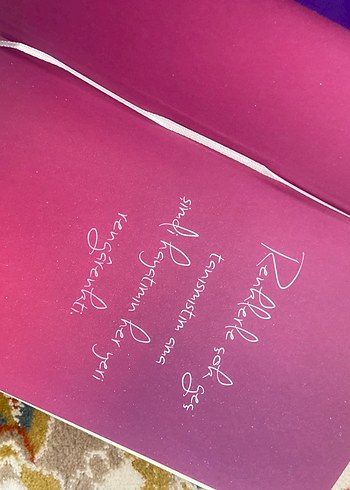 Renklerle çok geç
tanışmıştım ama
şimdi, hayatımın her yeri
rengârenkti.